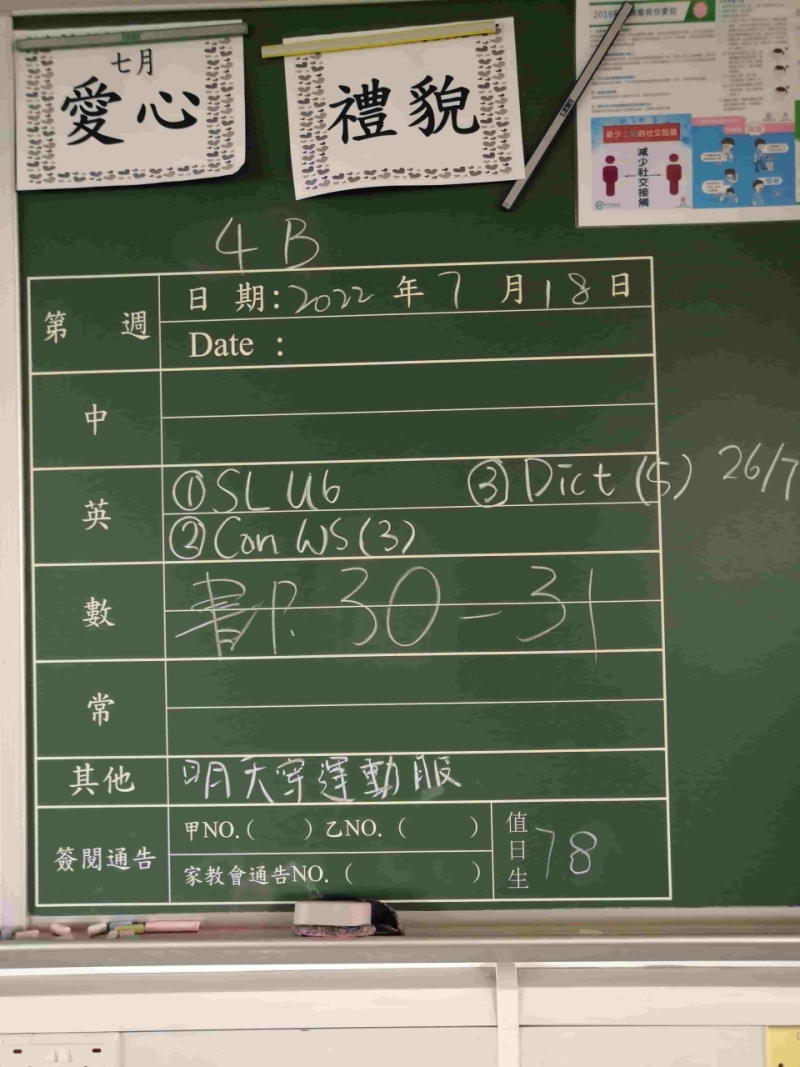 七月
愛心
禮貌
減少社交接觸
4B
第 週
日 期: 2022 年 7 月 18 日
Date :
中
英
① SL U6 ③ Dict (5) 26/7
② Con WS (3)
數
書P. 30 - 31
常
其他
明天穿運動服
簽閱通告
甲NO.( ) 乙NO. ( )
家教會通告NO. ( )
值日生
7 8